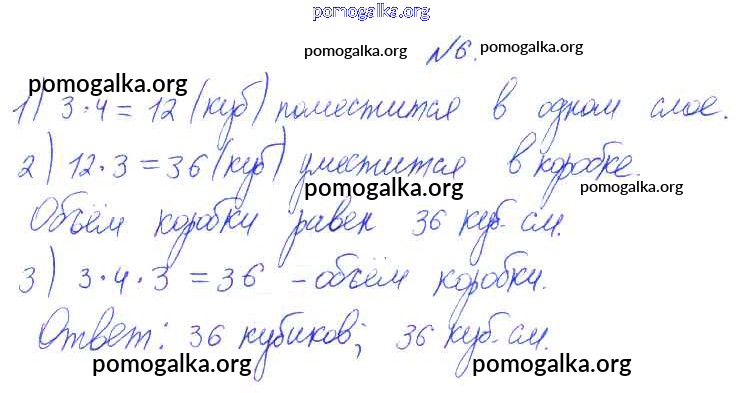 pomogalka.org
pomogalka.org №6. pomogalka.org
pomogalka.org
1) 3·4 = 12 (куб) поместится в одном слое.
2) 12·3 = 36 (куб) уместится в коробке.
pomogalka.org pomogalka.org
Объём коробки равен 36 куб. см.
3) 3·4·3 = 36 – объём коробки.
Ответ: 36 кубиков; 36 куб. см.
pomogalka.org pomogalka.org